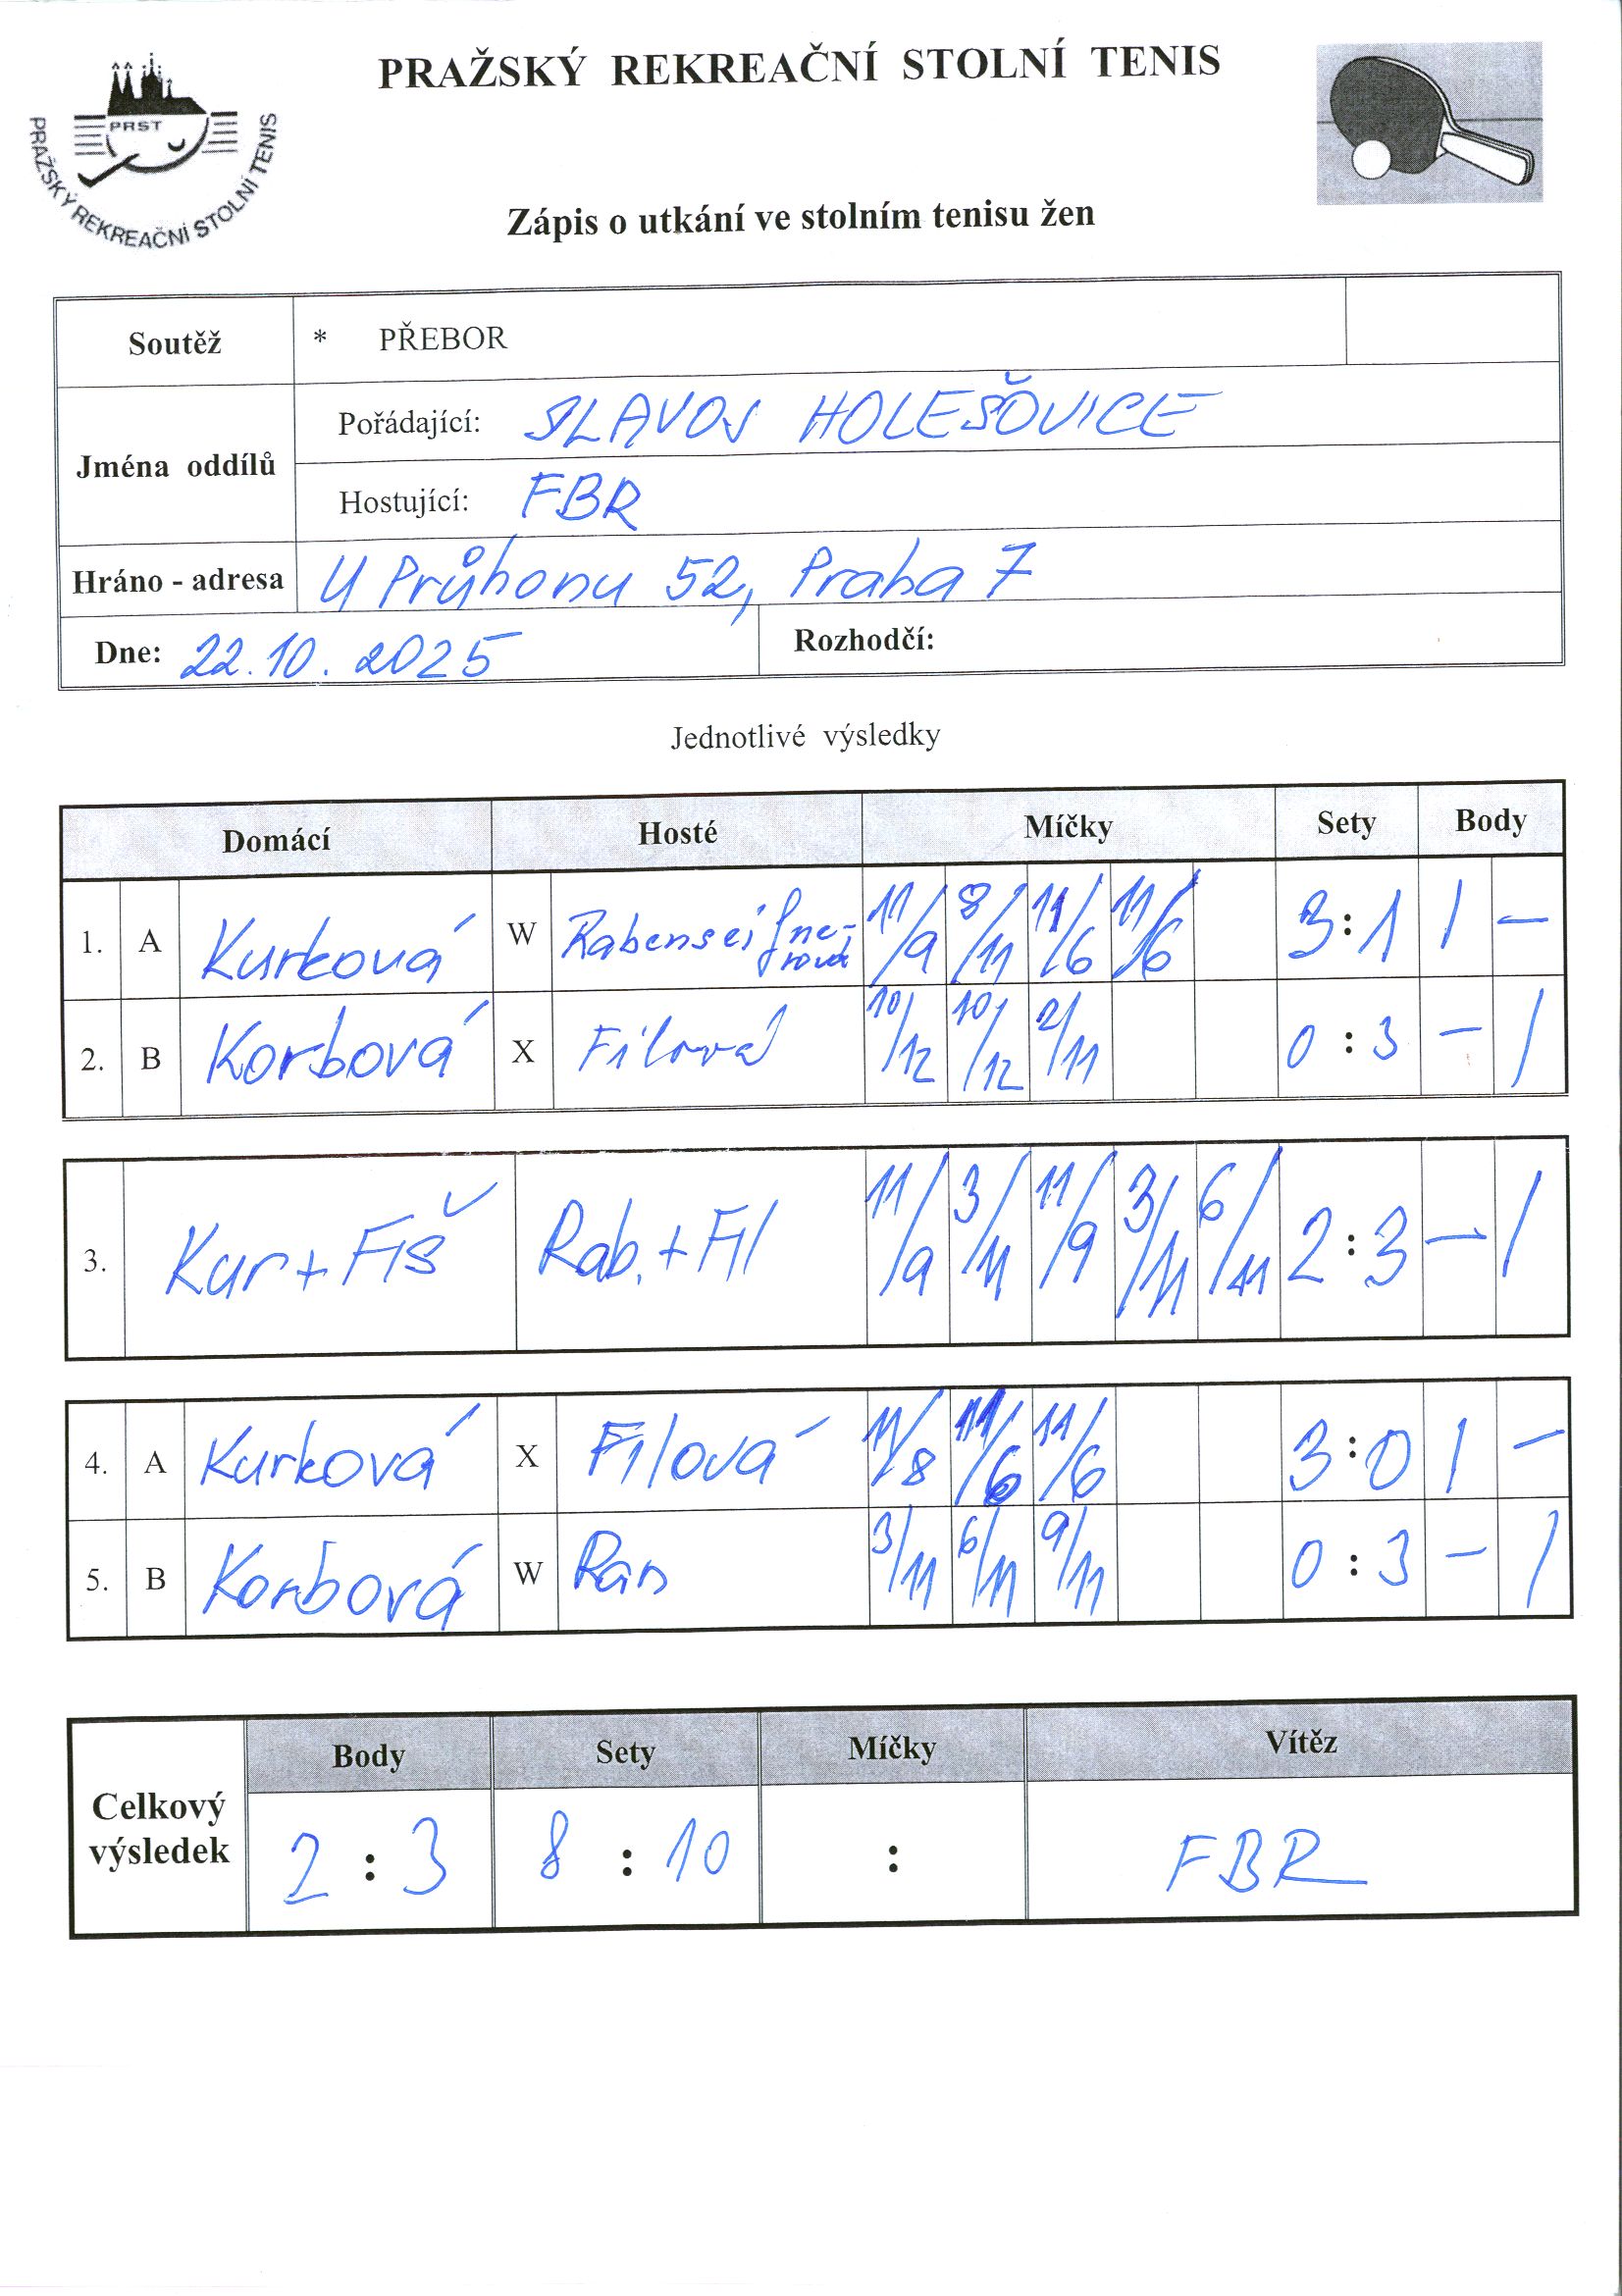 PRAŽSKÝ REKREAČNÍ STOLNÍ TENIS
PRST
PRAŽSKÝ REKREAČNÍ STOLNÍ TENIS
Zápis o utkání ve stolním tenisu žen
Soutěž * PŘEBOR
Jména oddílů
Pořádající: SLAVOJ HOLEŠOVICE
Hostující: FBR
Hráno - adresa U Průhonu 52, Praha 7
Dne: 22.10.2025 Rozhodčí:
Jednotlivé výsledky
Domácí Hosté Míčky Sety Body
1. A Kurková W Rabenseifnerová 11/9 8/11 11/6 11/6 3:1 1 –
2. B Korbová X Filová 10/12 10/12 2/11 0:3 – 1
3. Kur+Fiš Rab.+Fil 11/9 3/11 11/9 3/11 6/11 2:3 – 1
4. A Kurková X Filová 11/8 11/6 11/6 3:0 1 –
5. B Korbová W 3/11 6/11 9/11 0:3 – 1
Celkový výsledek
Body Sety Míčky Vítěz
2:3 8:10 : FBR